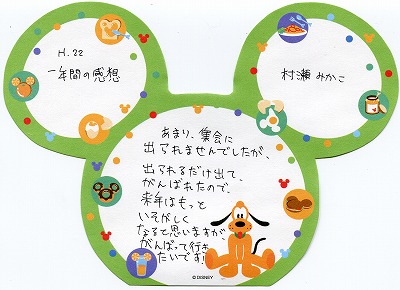 H.22
一年間の感想
村瀬 みかこ
あまり、集会に
出られませんでしたが、
出られるだけ出て、
がんばれたので、
来年はもっと
いそがしく
なると思いますが、
がんばって行き
たいです!
© DISNEY